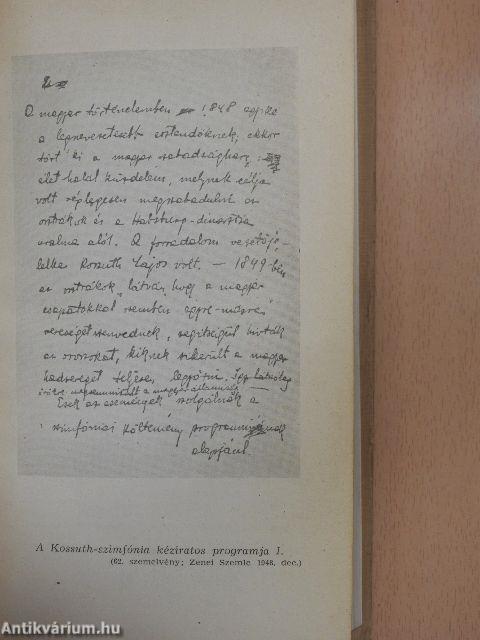 A magyar történelemben 1848 egyike
a legnevezetesebb esztendőknek, ekkor
tört ki a magyar szabadságharc:
élet-halál küzdelem, melynek célja
volt véglegesen megszabadulni az
osztrákok és a Habsburg-dinasztia
uralma alól. A forradalom vezetője,
lelke Kossuth Lajos volt. — 1849-ben
az osztrákok, látván, hogy a magyar
csapatokkal szemben egyre-másra
vereséget szenvednek, segítségül hívták
az oroszokat, kiknek sikerült a magyar
hadsereget teljesen legyőzni. Így látszólag
örökre megsemmisült a magyar államiság.
Ezek az események szolgálnak a
szimfóniai költemény programmjának
alapjául.
A Kossuth-szimfónia kéziratos programja I.
(62. szemelvény; Zenei Szemle 1948. dec.)
Antikvárium.hu